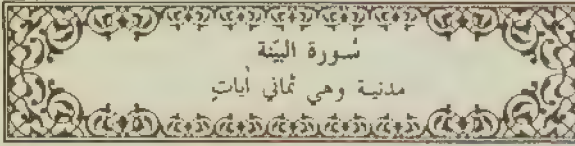 سورة البيّنة
مدنية وهي ثماني أيات